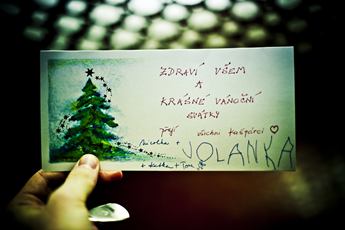 ZDRAVÍ VŠEM
A
KRÁSNÉ VÁNOČNÍ
SVÁTKY
přejí všichni kašpárci
Nicolka + JOLANKA
+ Katka + Tom